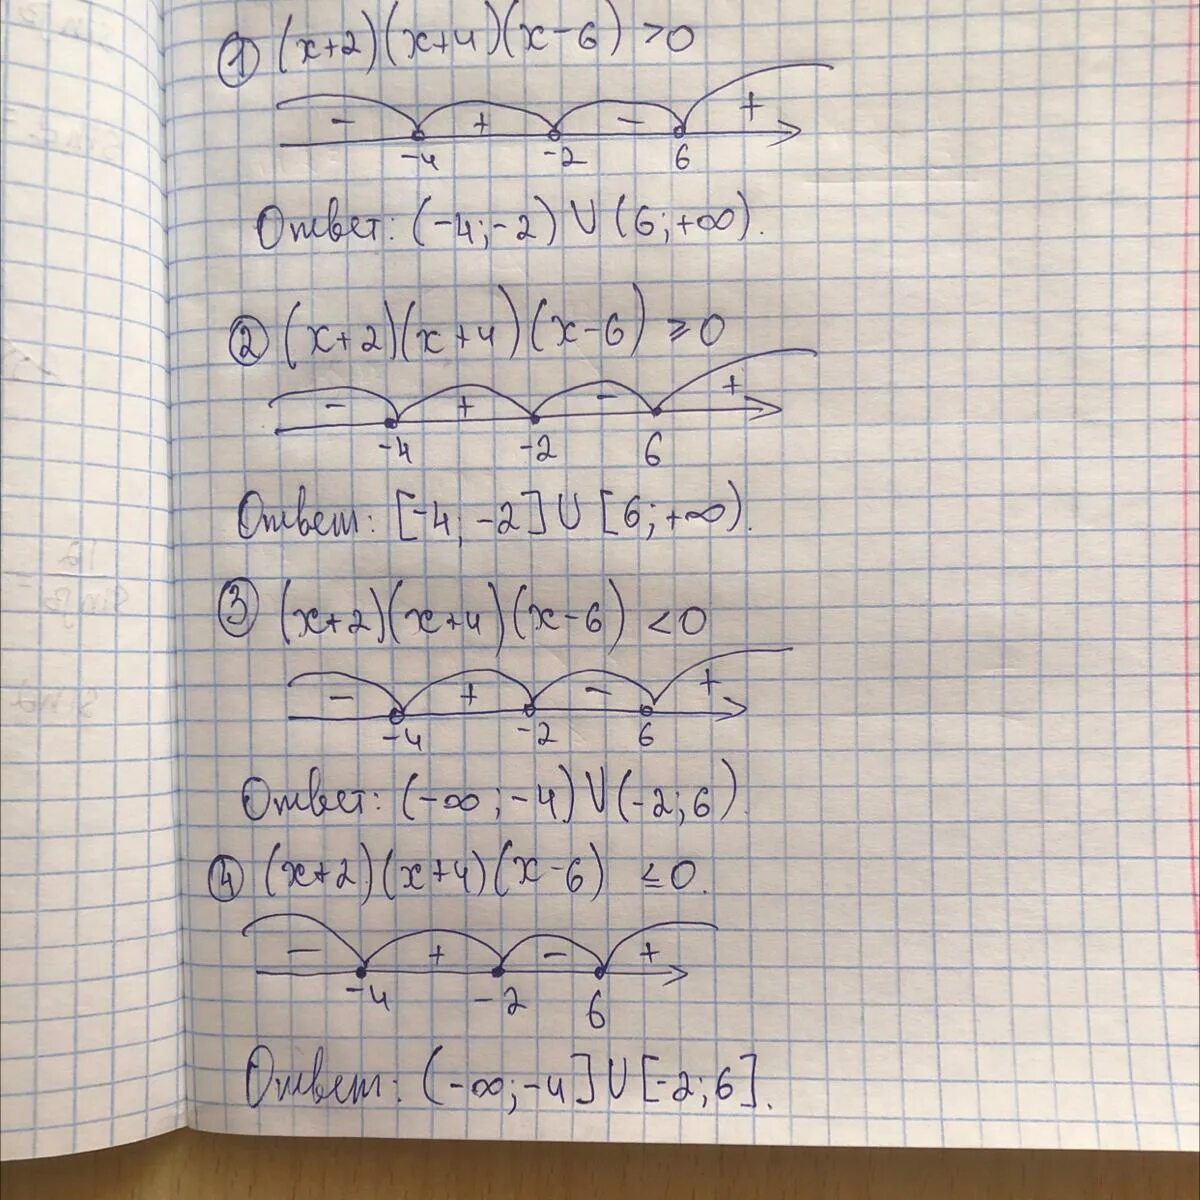 ① (x+2)(x+4)(x-6) >0
- + - +
-4 -2 6
Ответ: (-4;-2) U (6;+∞).
② (x+2)(x+4)(x-6) ≥0
- + - +
-4 -2 6
Ответ: [-4; -2] U [6;+∞).
③ (x+2)(x+4)(x-6) <0
- + - +
-4 -2 6
Ответ: (-∞; -4) U (-2;6).
④ (x+2)(x+4)(x-6) ≤0.
- + - +
-4 -2 6
Ответ: (-∞;-4] U [-2;6].